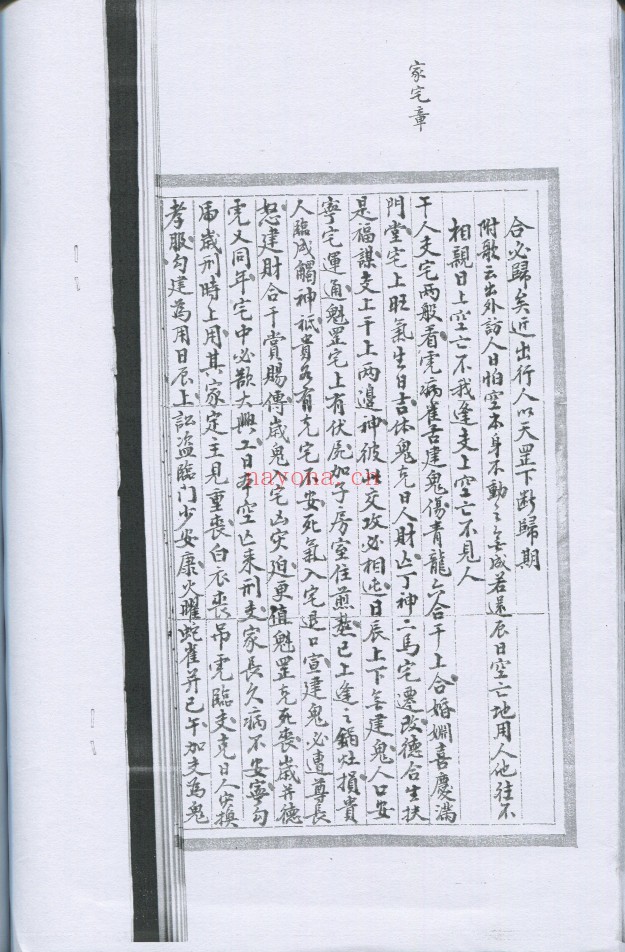 家宅章
合必歸矣近出行人以天罡下斷歸期
附歌云出外訪人日怕空本身不動之無成若還辰日空亡地用人他往不
相親日上空亡不我逢支上空亡不見人
干人支宅兩般看虎病雀舌建鬼傷青龍六合干上合婚姻喜慶滿
門堂宅上旺氣生日吉休鬼克日人財亡丁神二馬宅遷改德合生扶
是福謀支上干上兩邊神彼此交攻必相迍日辰上下無建鬼人口安
寧宅運通魁罡宅上有伏屍加子房室住煎熬巳上逢之鍋灶損貴
人臨戌觸神祇貴名有克宅不安死氣入宅退口宣建鬼必遭尊長
怒建財合干賞賜傳歲鬼入宅凶災迫更值魁罡克死喪歲并德
虎又同年宅中必欲大興工日本空亡來刑支家長久病不安寧勾
為歲刑時上用其家定主見重喪白衣喪吊虎臨支克日人災換
孝服勾建為用日辰上訟盜臨門少安康火曜蛇雀并巳午加支為鬼
nayona.cn